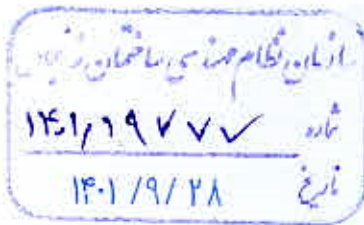 سازمان نظام مهندسی ساختمان زنجان
شماره ۱۴۰۱/۱۹۷۷۷
تاریخ ۱۴۰۱/۹/۲۸